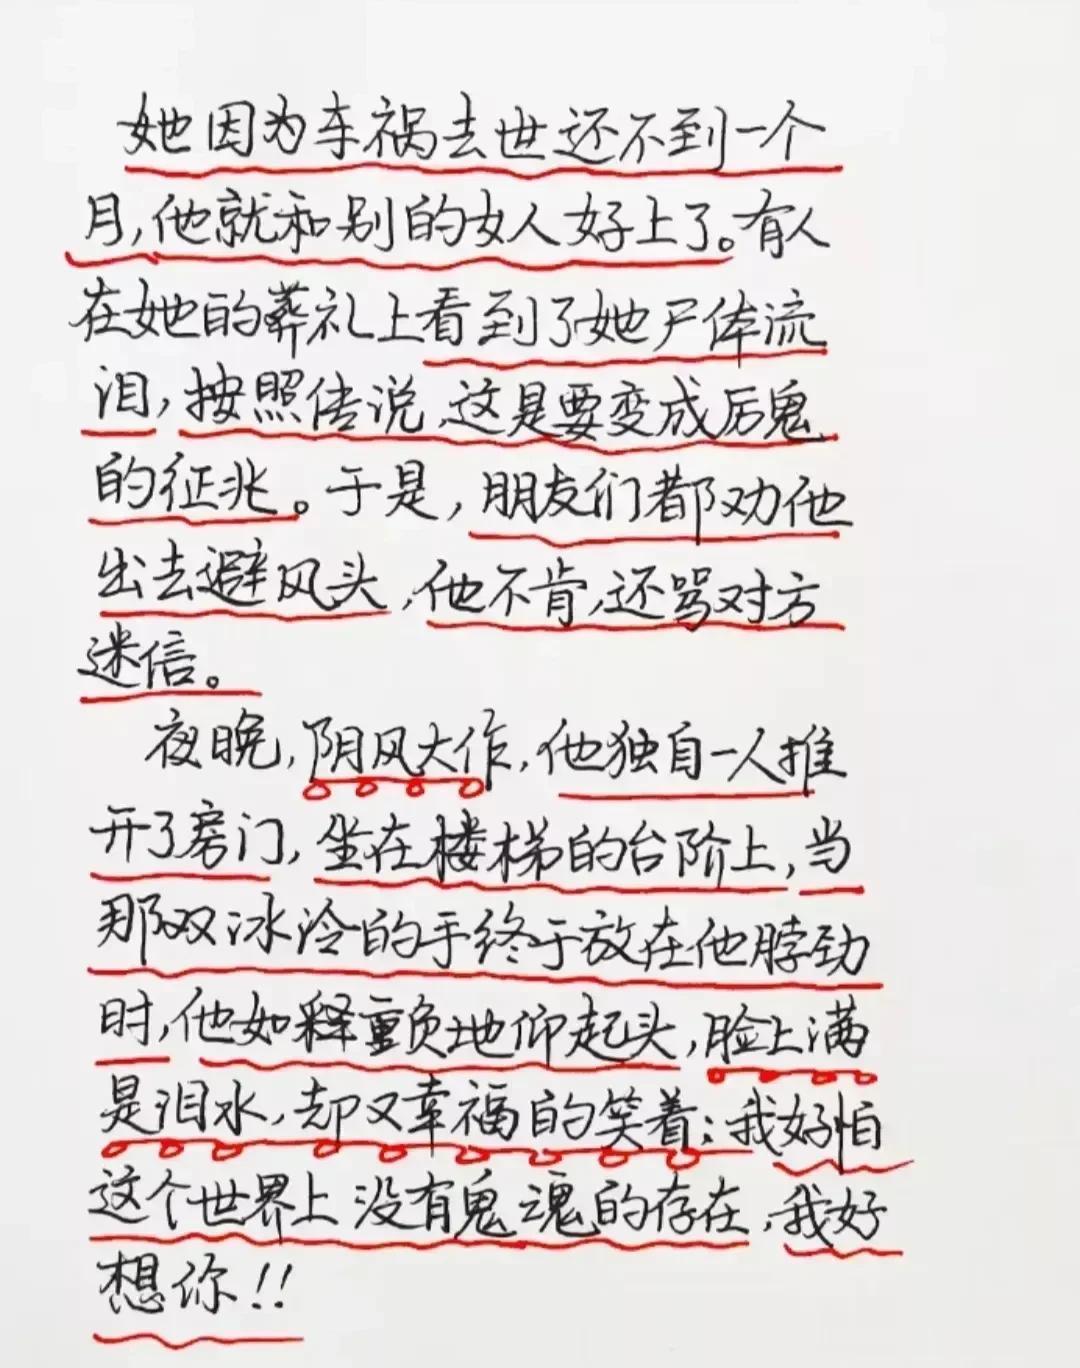 她因为车祸去世还不到一个
月,他就和别的女人好上了。有人
在她的葬礼上看到了她尸体流
泪,按照传说,这是要变成厉鬼
的征兆。于是,朋友们都劝他
出去避风头,他不肯,还骂对方
迷信。
夜晚,阴风大作,他独自一人推
开了房门,坐在楼梯的台阶上,当
那双冰冷的手终于放在他脖劲
时,他如释重负地仰起头,脸上满
是泪水,却又幸福的笑着:我好怕
这个世界上没有鬼魂的存在,我好
想你!!